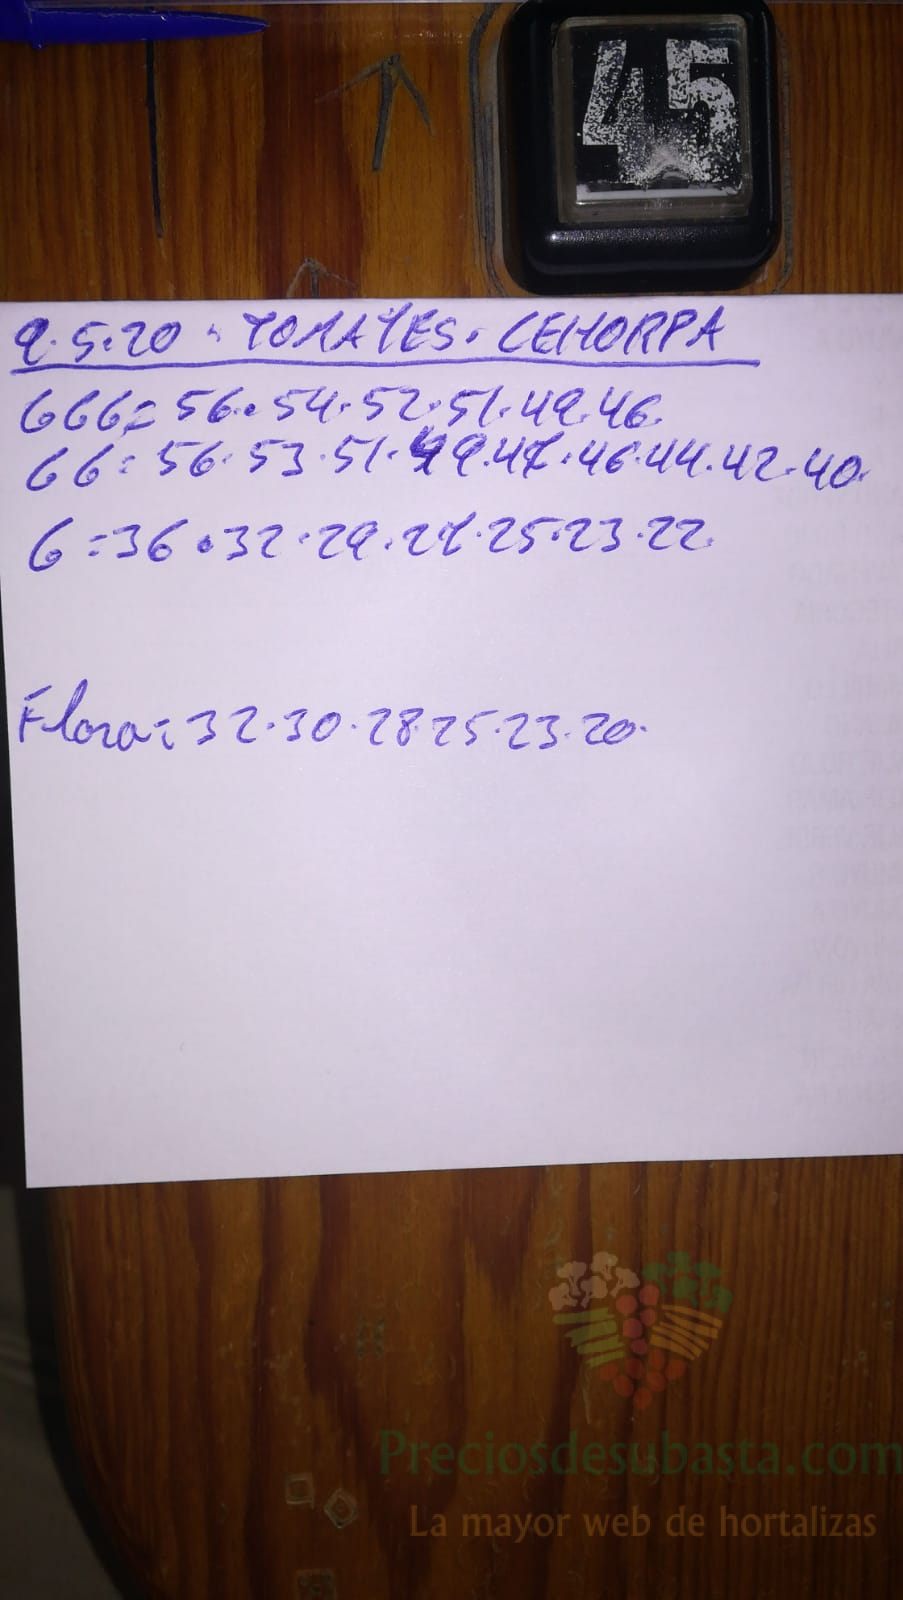 45
9.5.20 · TOMATES. CEHORPA
666= 56.54.52.51.49.46.
66= 56.53.51.49.47.46.44.42.40.
6=36.32.29.27.25.23.22.
Flora=32.30.28.25.23.20.
Preciosdesubasta.com
La mayor web de hortalizas